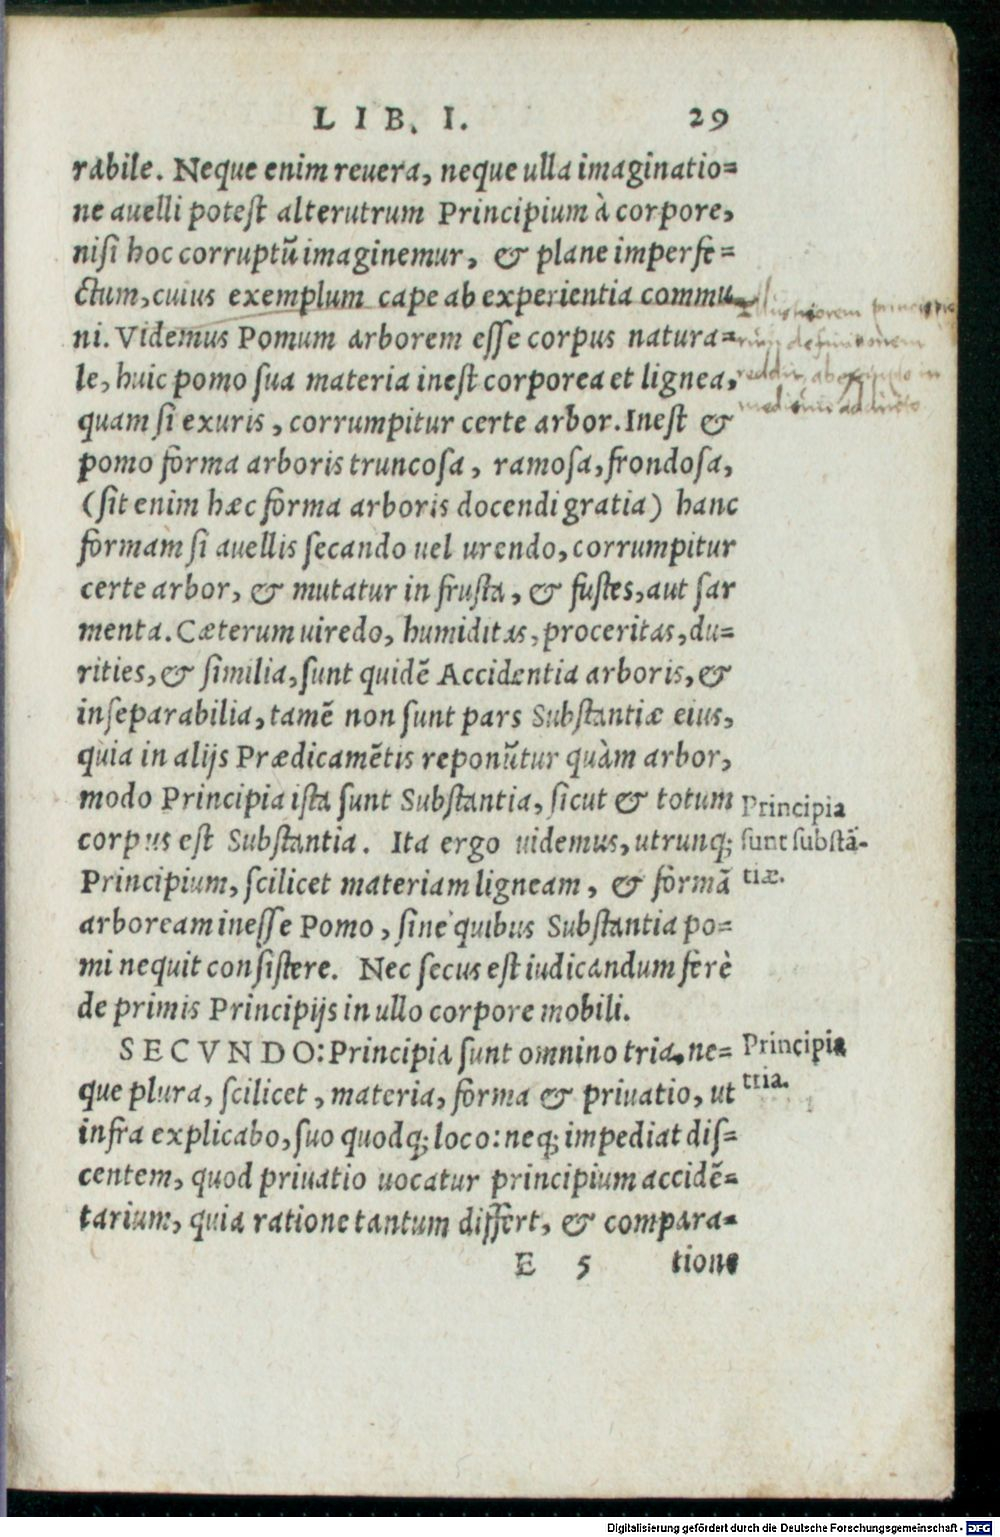 LIB. I. 29
rabile. Neque enim reuera, neque ulla imaginatio=
ne auelli potest alterutrum Principium à corpore,
nisi hoc corruptũ imaginemur, & plane imperfe=
ctum, cuius exemplum cape ab experientia commu=
ni. Videmus Pomum arborem esse corpus natura=
le, huic pomo sua materia inest corporea et lignea,
quam si exuris, corrumpitur certe arbor. Inest &
pomo forma arboris truncosa, ramosa, frondosa,
(sit enim hæc forma arboris docendi gratia) hanc
formam si auellis secando uel urendo, corrumpitur
certe arbor, & mutatur in frusta, & fustes, aut sar
menta. Cæterum uiredo, humiditas, proceritas, du=
rities, & similia, sunt quidẽ Accidentia arboris, &
inseparabilia, tamẽ non sunt pars Substantiæ eius,
quia in alijs Prædicamẽtis reponũtur quàm arbor,
modo Principia ista sunt Substantia, sicut & totum
corpus est Substantia. Ita ergo uidemus, utrunq;
Principium, scilicet materiam ligneam, & formã
arboream inesse Pomo, sine quibus Substantia po=
mi nequit consistere. Nec secus est iudicandum ferè
de primis Principijs in ullo corpore mobili.
SECVNDO: Principia sunt omnino tria, ne=
que plura, scilicet, materia, forma & priuatio, ut
infra explicabo, suo quodq; loco: neq; impediat dis=
centem, quod priuatio uocatur principium accidẽ=
tarium, quia ratione tantum differt, & compara=
E 5 tione
Principia
sunt substã-
tiæ.
Principia
tria.
definitionem
reddit
Digitalisierung gefördert durch die Deutsche Forschungsgemeinschaft - DFG